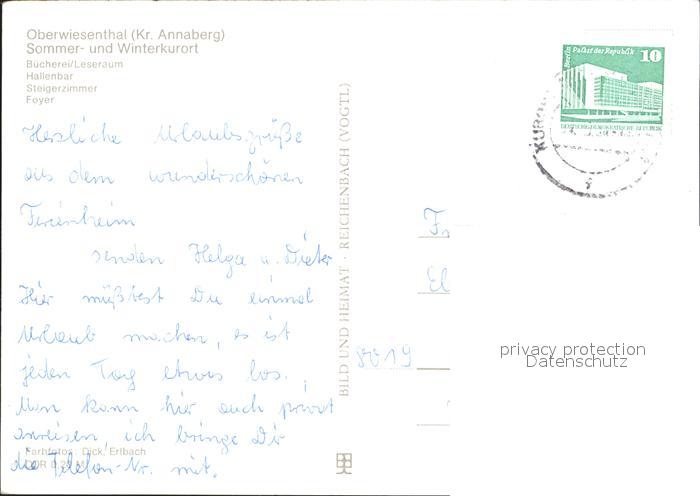 Oberwiesenthal (Kr. Annaberg)
Sommer- und Winterkurort
Bücherei/Leseraum
Hallenbar
Steigerzimmer
Foyer
Herzliche Urlaubsgrüße
aus dem wunderschönen
Ferienheim
senden Helga u. Dieter
Hier müßtest Du einmal
Urlaub machen, es ist
jeden Tag etwas los.
Man kann hier auch privat
anreisen, ich bringe Dir
die Telefon-Nr. mit.
Farbfotos: Dick, Erlbach
DDR 0,20 M
BILD UND HEIMAT · REICHENBACH (VOGTL)
Berlin Palast der Republik 10
DEUTSCHE DEMOKRATISCHE REPUBLIK
8019
privacy protection
Datenschutz